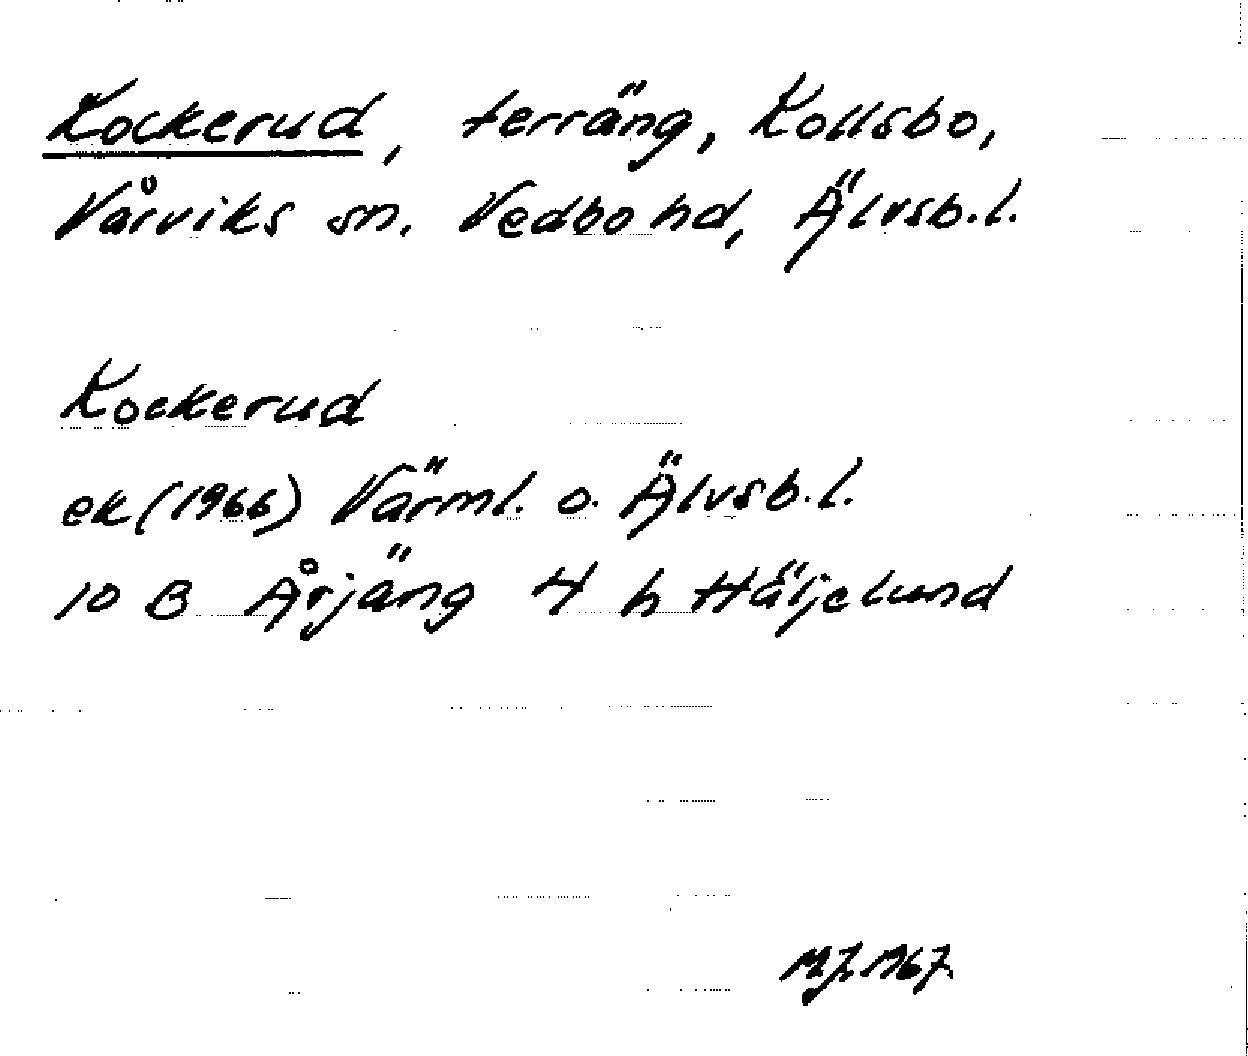 Kockerud, terräng, Kollsbo,
Vårviks sn. Vedbo hd, Älvsb.l.
Kockerud
ek (1966) Värml. o. Älvsb.l.
10 B Årjäng 4 h Häljelund
MJ. 1967.